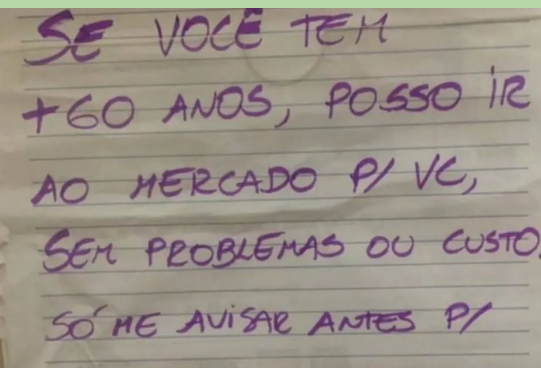 SE VOCÊ TEM
+60 ANOS, POSSO IR
AO MERCADO P/ VC,
SEM PROBLEMAS OU CUSTO.
SÓ ME AVISAR ANTES P/